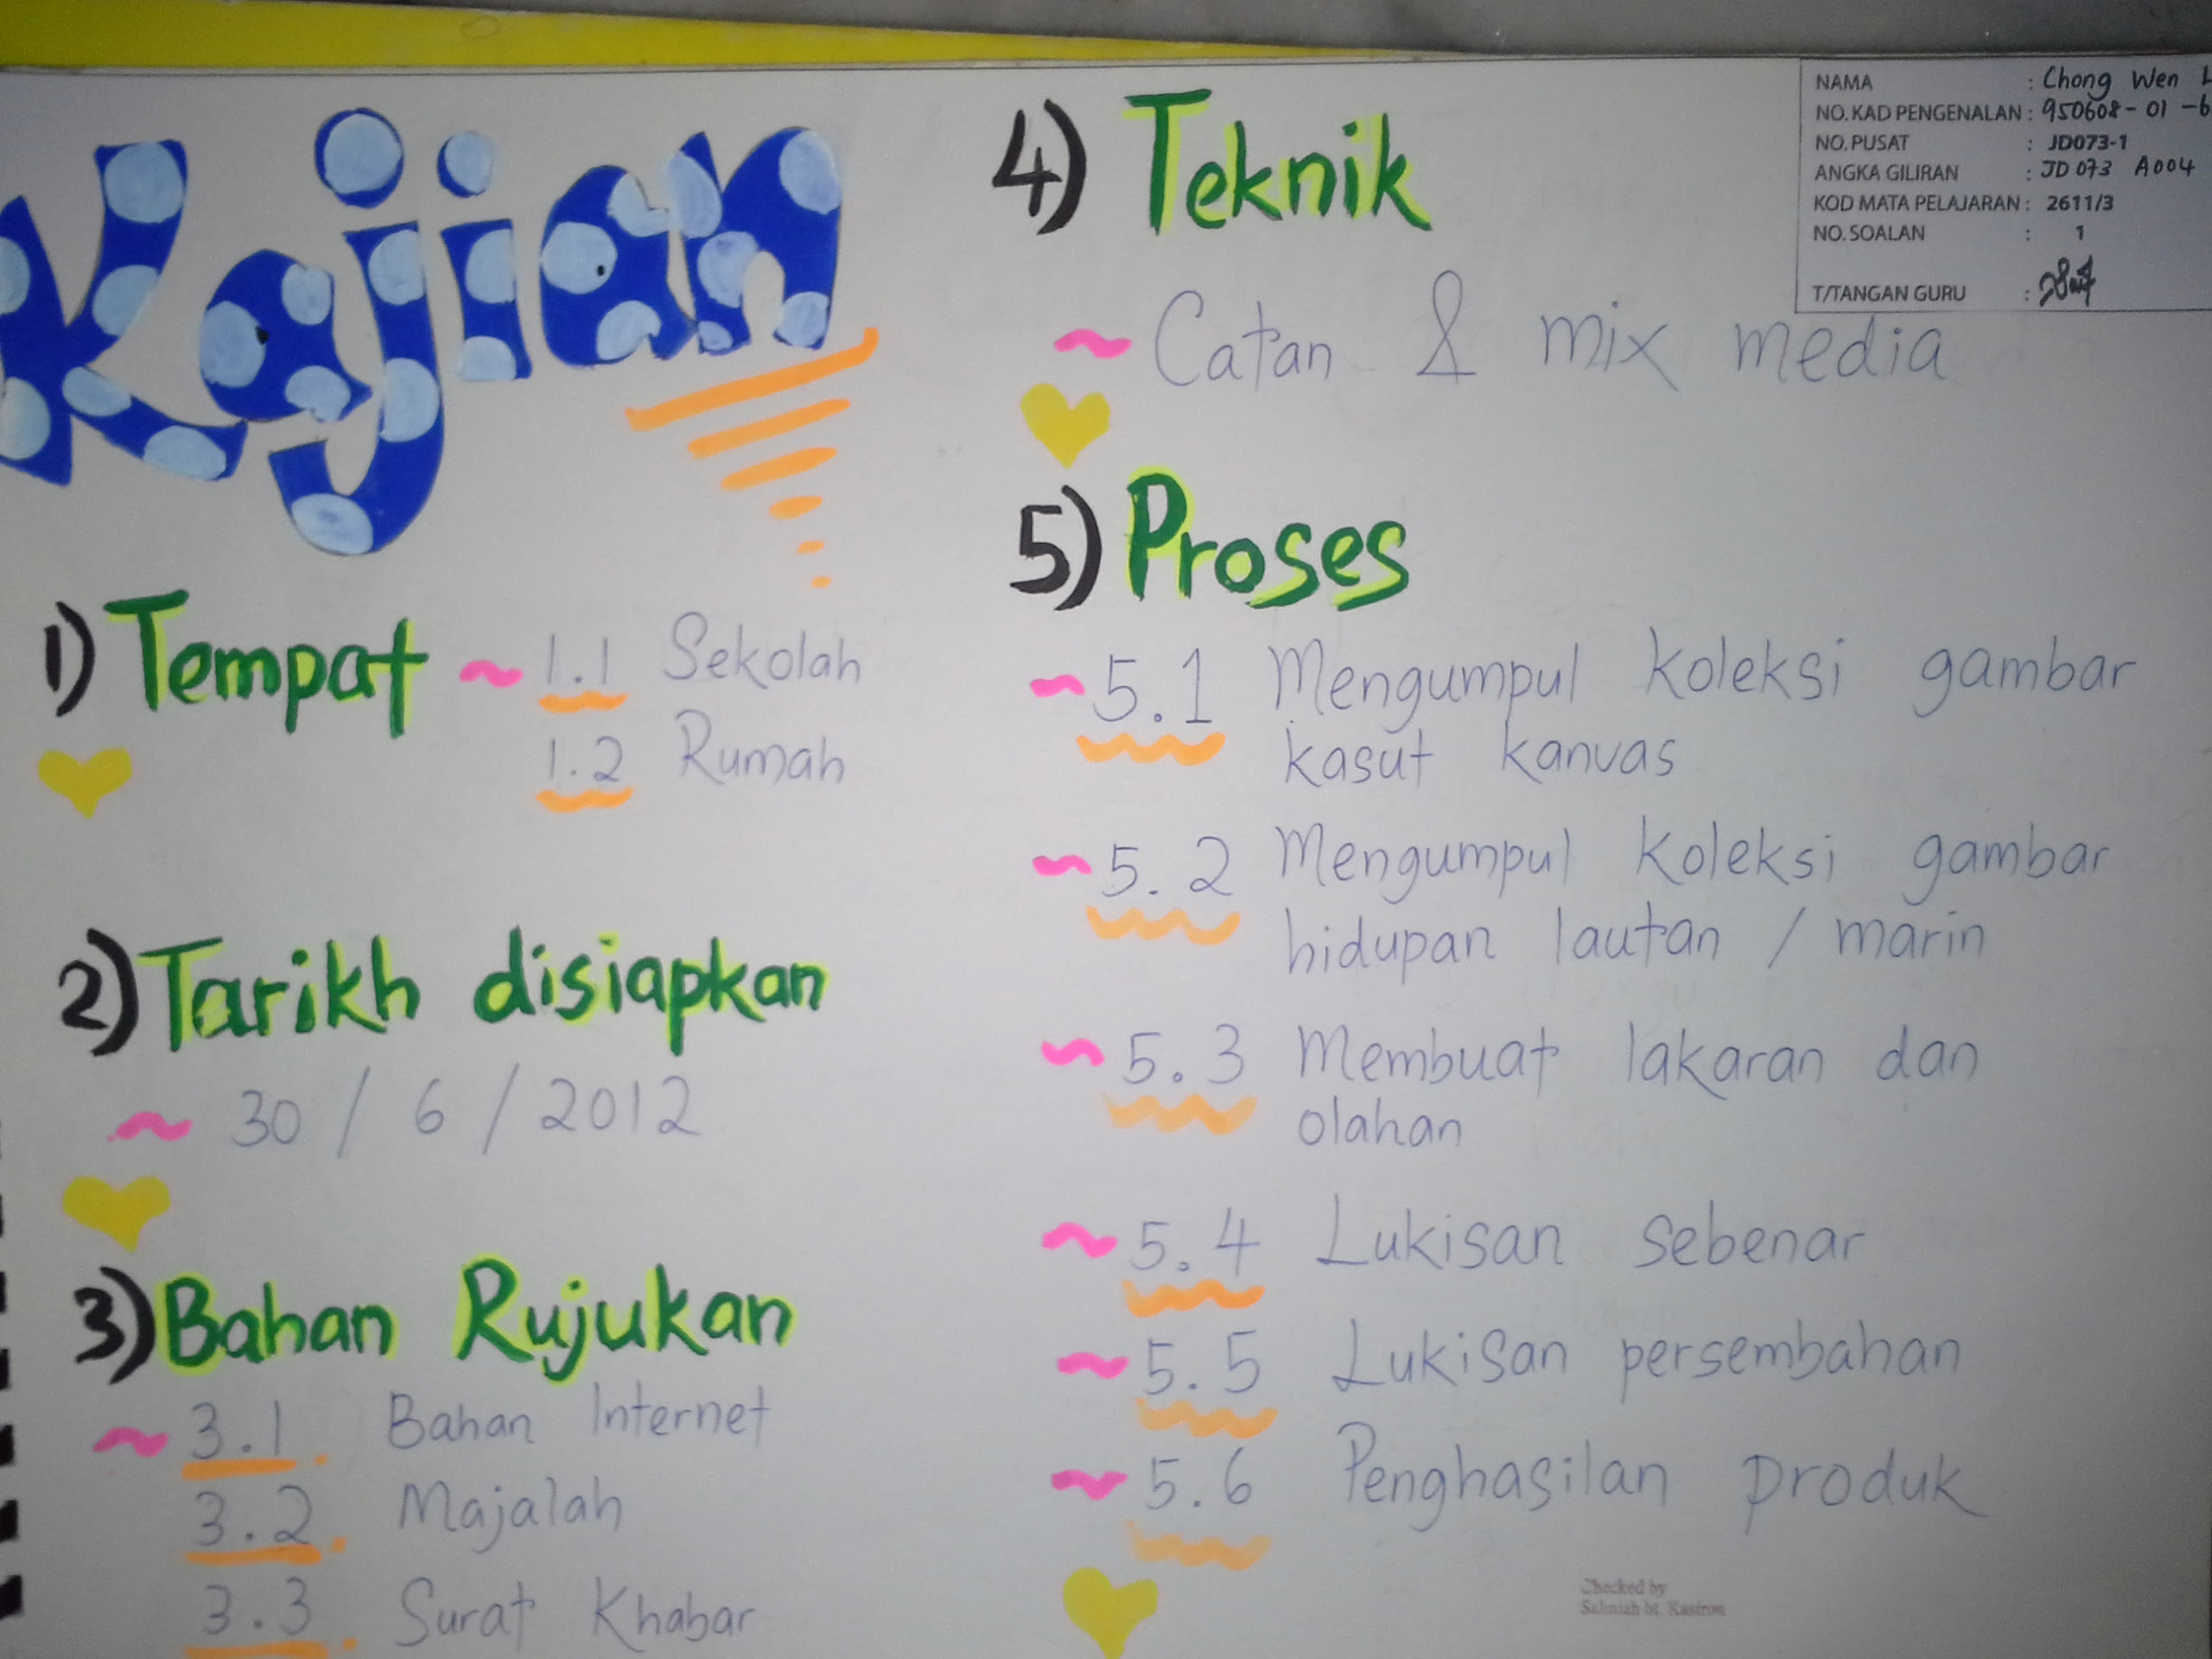 Kajian
1) Tempat ~ 1.1 Sekolah
1.2 Rumah
2) Tarikh disiapkan
~ 30 / 6 / 2012
3) Bahan Rujukan
~ 3.1. Bahan Internet
3.2. Majalah
3.3. Surat Khabar
4) Teknik
~ Catan & mix media
5) Proses
~ 5.1 Mengumpul koleksi gambar
kasut kanvas
~ 5.2 Mengumpul koleksi gambar
hidupan lautan / marin
~ 5.3 Membuat lakaran dan
olahan
~ 5.4 Lukisan sebenar
~ 5.5 Lukisan persembahan
~ 5.6 Penghasilan produk
NAMA : Chong Wen L
NO. KAD PENGENALAN : 950608-01-6
NO. PUSAT : JD073-1
ANGKA GILIRAN : JD073 A004
KOD MATA PELAJARAN : 2611/3
NO. SOALAN : 1
T/TANGAN GURU :
Checked by
Salmiah bt. Kasiron